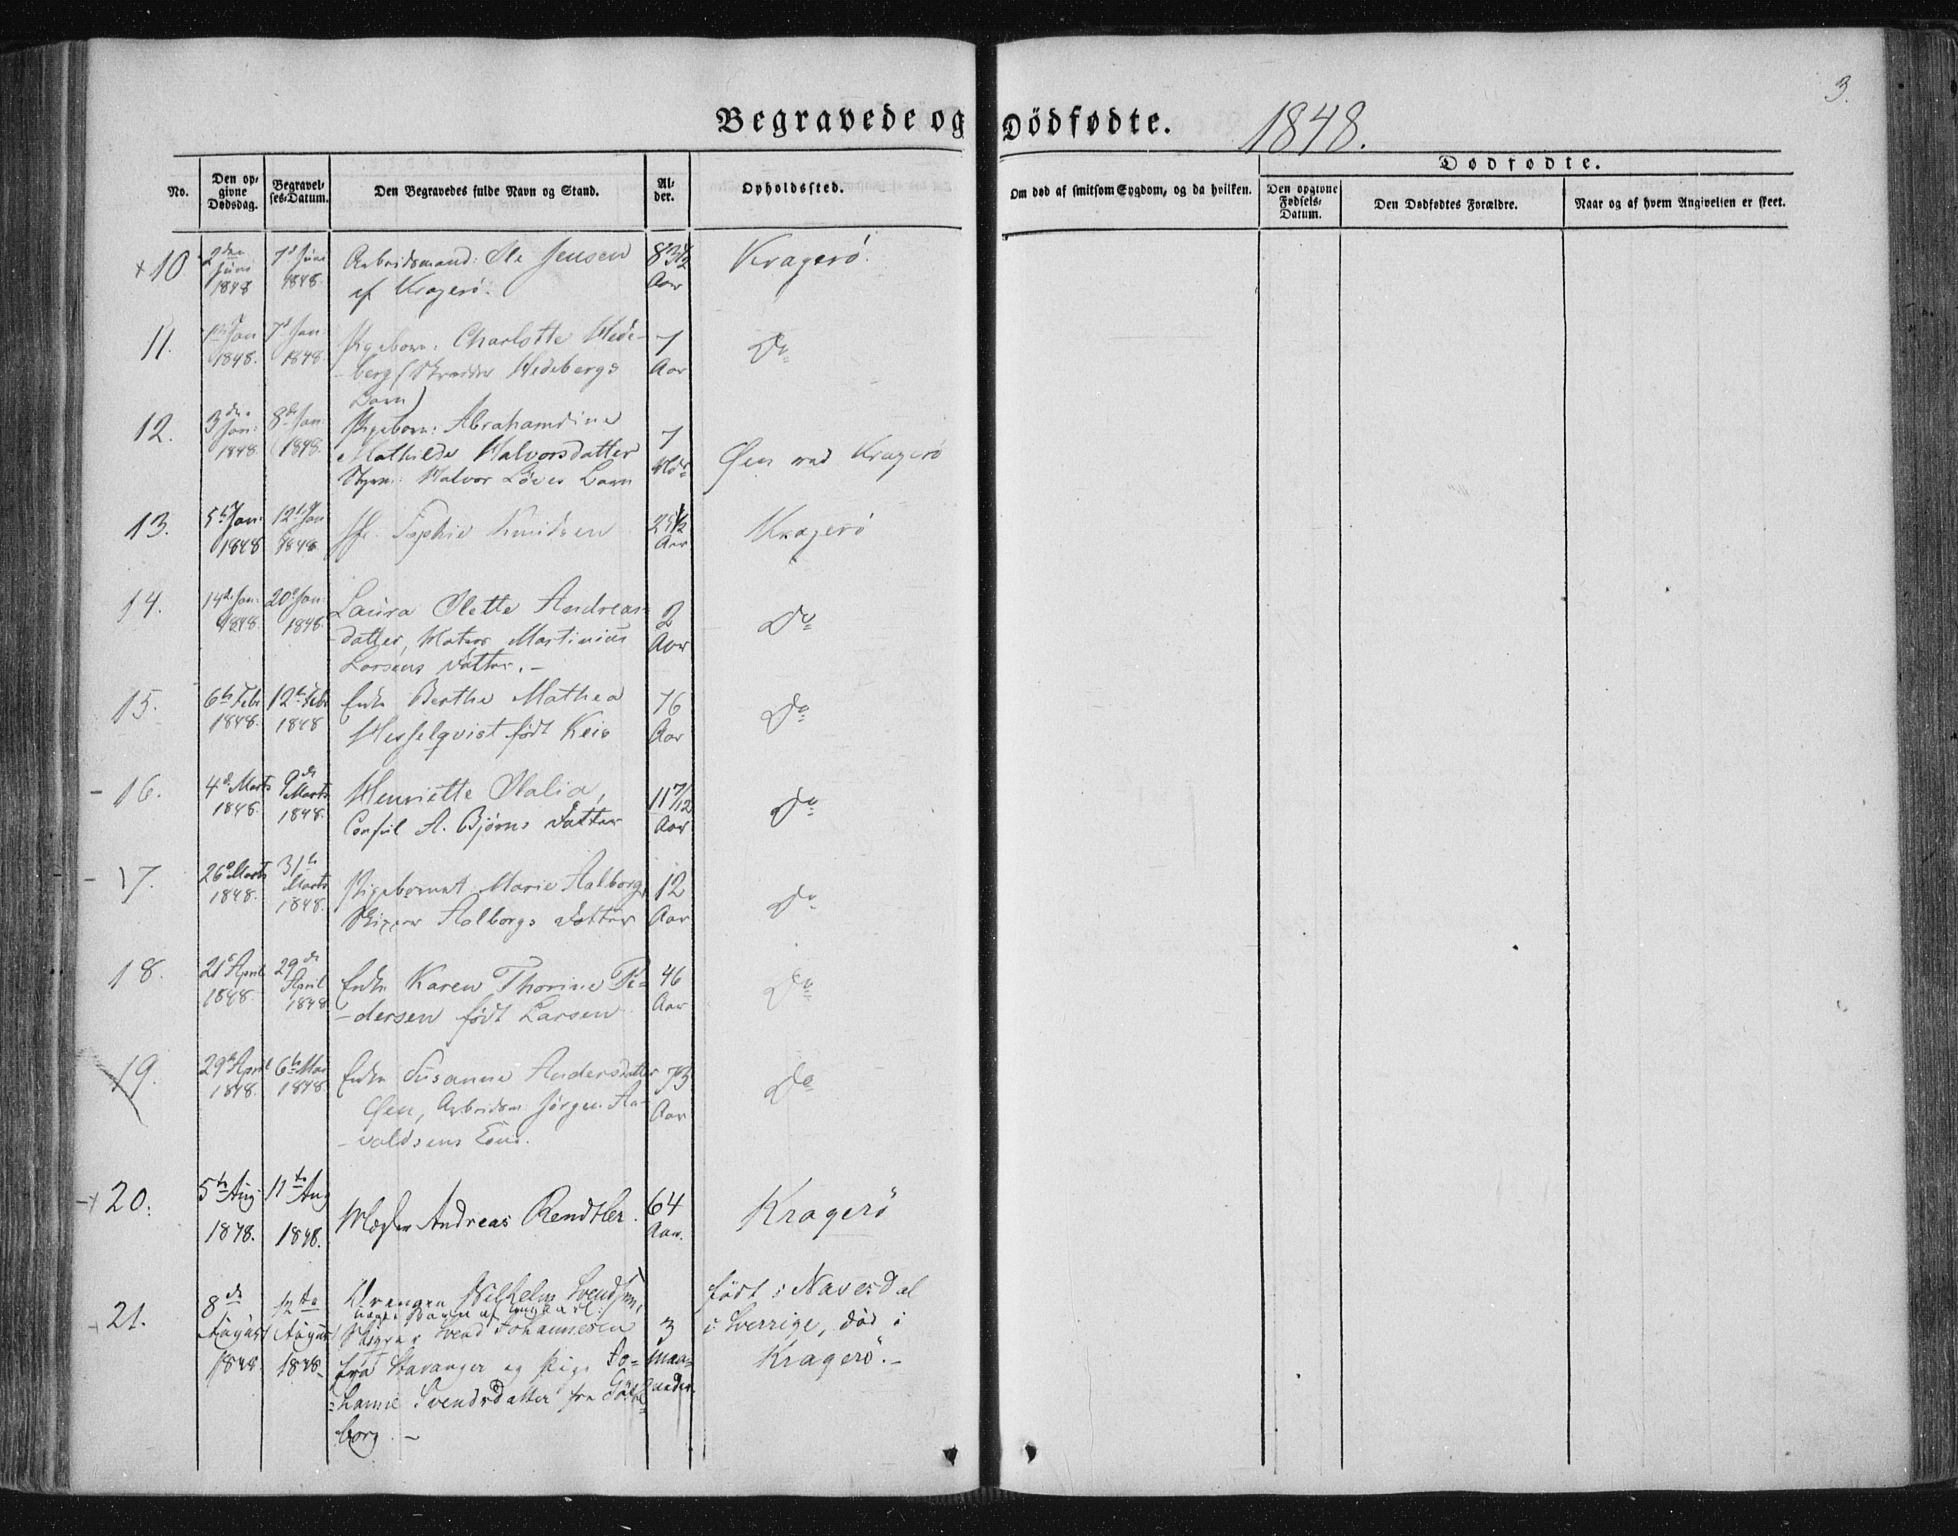 3.
Begravede og Dödfødte. 1848.
Dødfødte.
No. Den opgivne Dødsdag. Begravelses-Datum. Den Begravedes fulde Navn og Stand. Alder. Opholdssted. Om død af smitsom Sygdom, og da hvilken. Den opgivne Fødsels-Datum. Den Dødfødtes Forældre. Naar og af hvem Angivelsen er skeet.
+ 10 2den Juni 1848 7d Juni 1848. Arbeidsmand: Ole Jensen 83½ Aar Kragerö.
af Kragerö.
11. 1ste Jan 1848. 7d Jan 1848. Pigebarn: Charlotte Hede- 7 Aar Do
-berg (Skrædder Hedebergs
Barn)
12. 3die Jan: 1848. 8de Jan 1848. Pigebarn: Abrahamdine 7 Øen ved Kragerö
Mathilde Halvorsdatter
Styrm: Halvor Löves Barn
13. 5te Jan. 1848 12te Jan 1848 Sophie Knudsen 25½ Aar Kragerö
14. 14de Jan. 1848. 20de Jan 1848. Laura Olette Andreas- 2 Aar Do
-datter, Matros Martinius
Larsens Datter. -
15. 6te Febr 1848. 12te Febr 1848 Enke Berthe Mathea 76 Aar Do
Hesselqvist født Keis
- 16. 4de Marts 1848. 9de Marts 1848. Henriette Italia, 11 7/12 Aar Do
Consul A. Bjørns Datter
- 17. 26de Marts 1848. 31te Marts 1848. Pigebarnet Marie Aalborg, 12 Aar Do
Skipper Aalborgs Datter
18. 21de April 1848. 29de April 1848. Enke Karen Thorine Pe- 46 Aar Do
-dersen født Larsen
19. 29de April 1848. 6te Mai 1848 Enke Susanne Andersdatter 73 Aar Do
Øen, Arbeidsm Jörgen Aa-
-valdsens Enke.
-+ 20. 5te Aug 1848. 11te Aug 1848. Mægler Andreas Rendtler. 64 Aar. Kragerö
21. 8de August 1848. 12te August 1848. Drengen Wilhelm Svendsen, 3 Maaneder født i Navesdal
uægte Barn af
Svend Johannesen i Sverrige, død i
fra Stavanger og Pige Jo- Kragerö. -
-hanne Svendsdatter fra Göthe-
borg. -